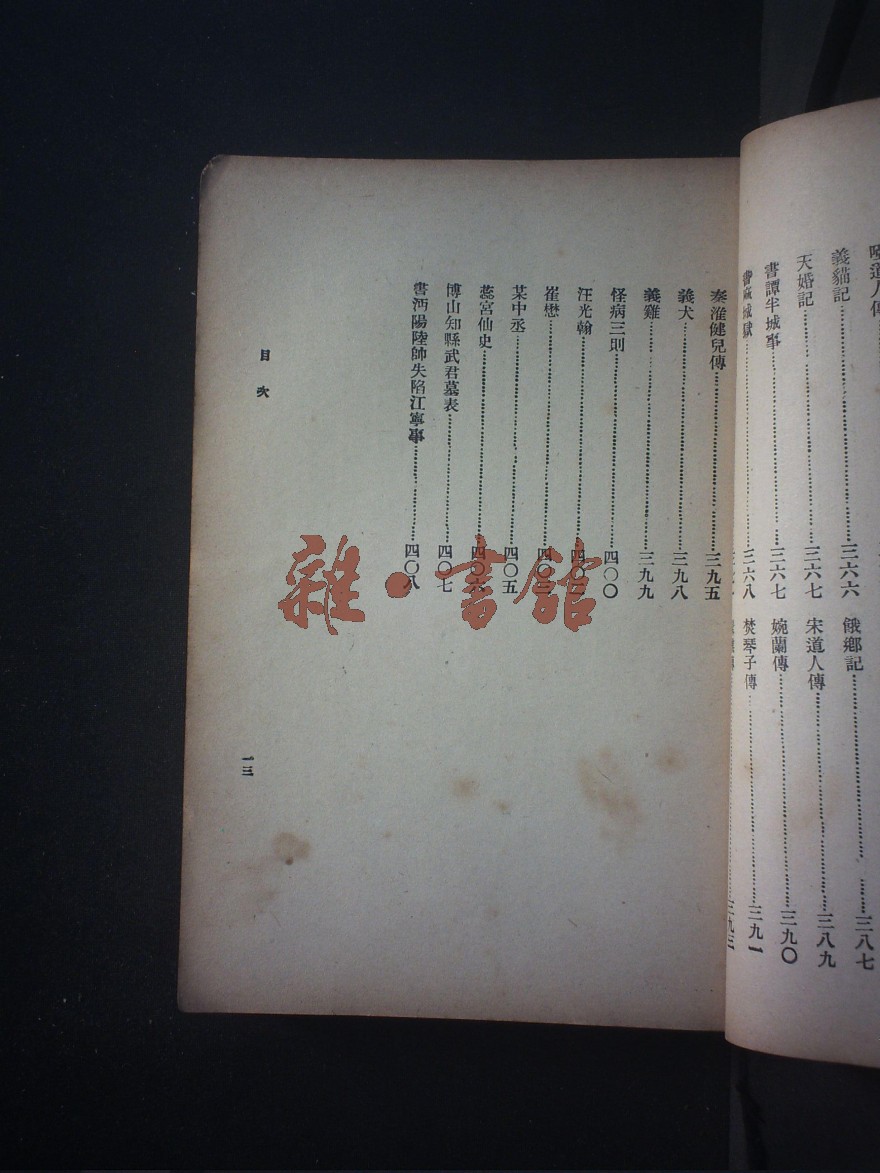 義貓記……三六六
天婚記……三六七
書譚半城事……三六七
書麻城獄……三六八
餓鄉記……三八七
宋道人傳……三八九
婉蘭傳……三九〇
焚琴子傳……三九一
秦淮健兒傳……三九五
義犬……三九八
義雞……三九九
怪病三則……四〇〇
汪光翰
崔懋
某中丞……四〇五
蕊宮仙史……四〇六
博山知縣武君墓表……四〇七
書沔陽陸帥失陷江寧事……四〇八
目次
一三
雜·書館